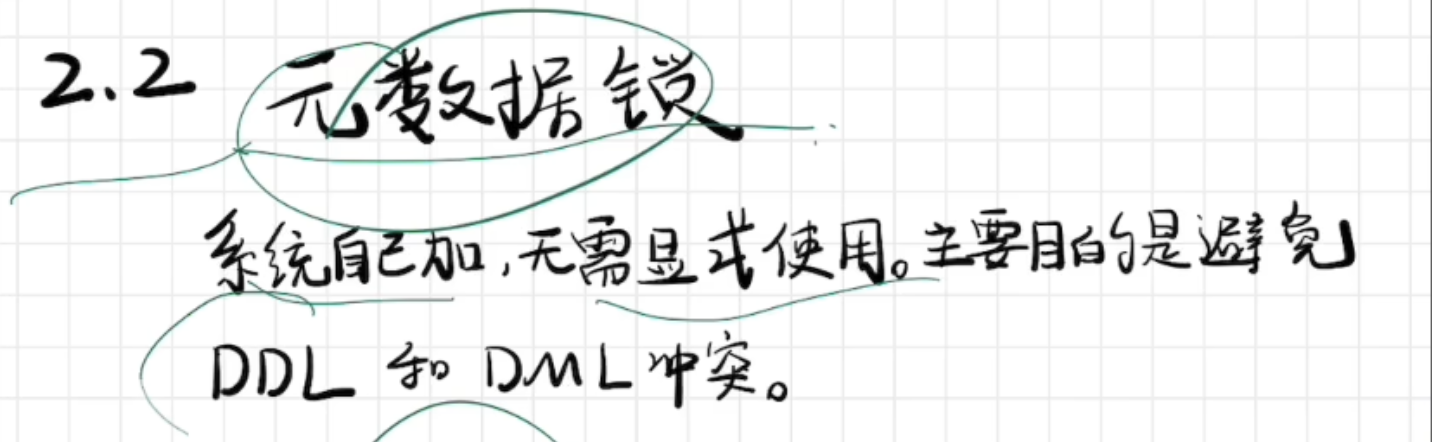 2.2 元数据锁
系统自己加,无需显式使用。主要目的是避免
DDL 和 DML冲突。